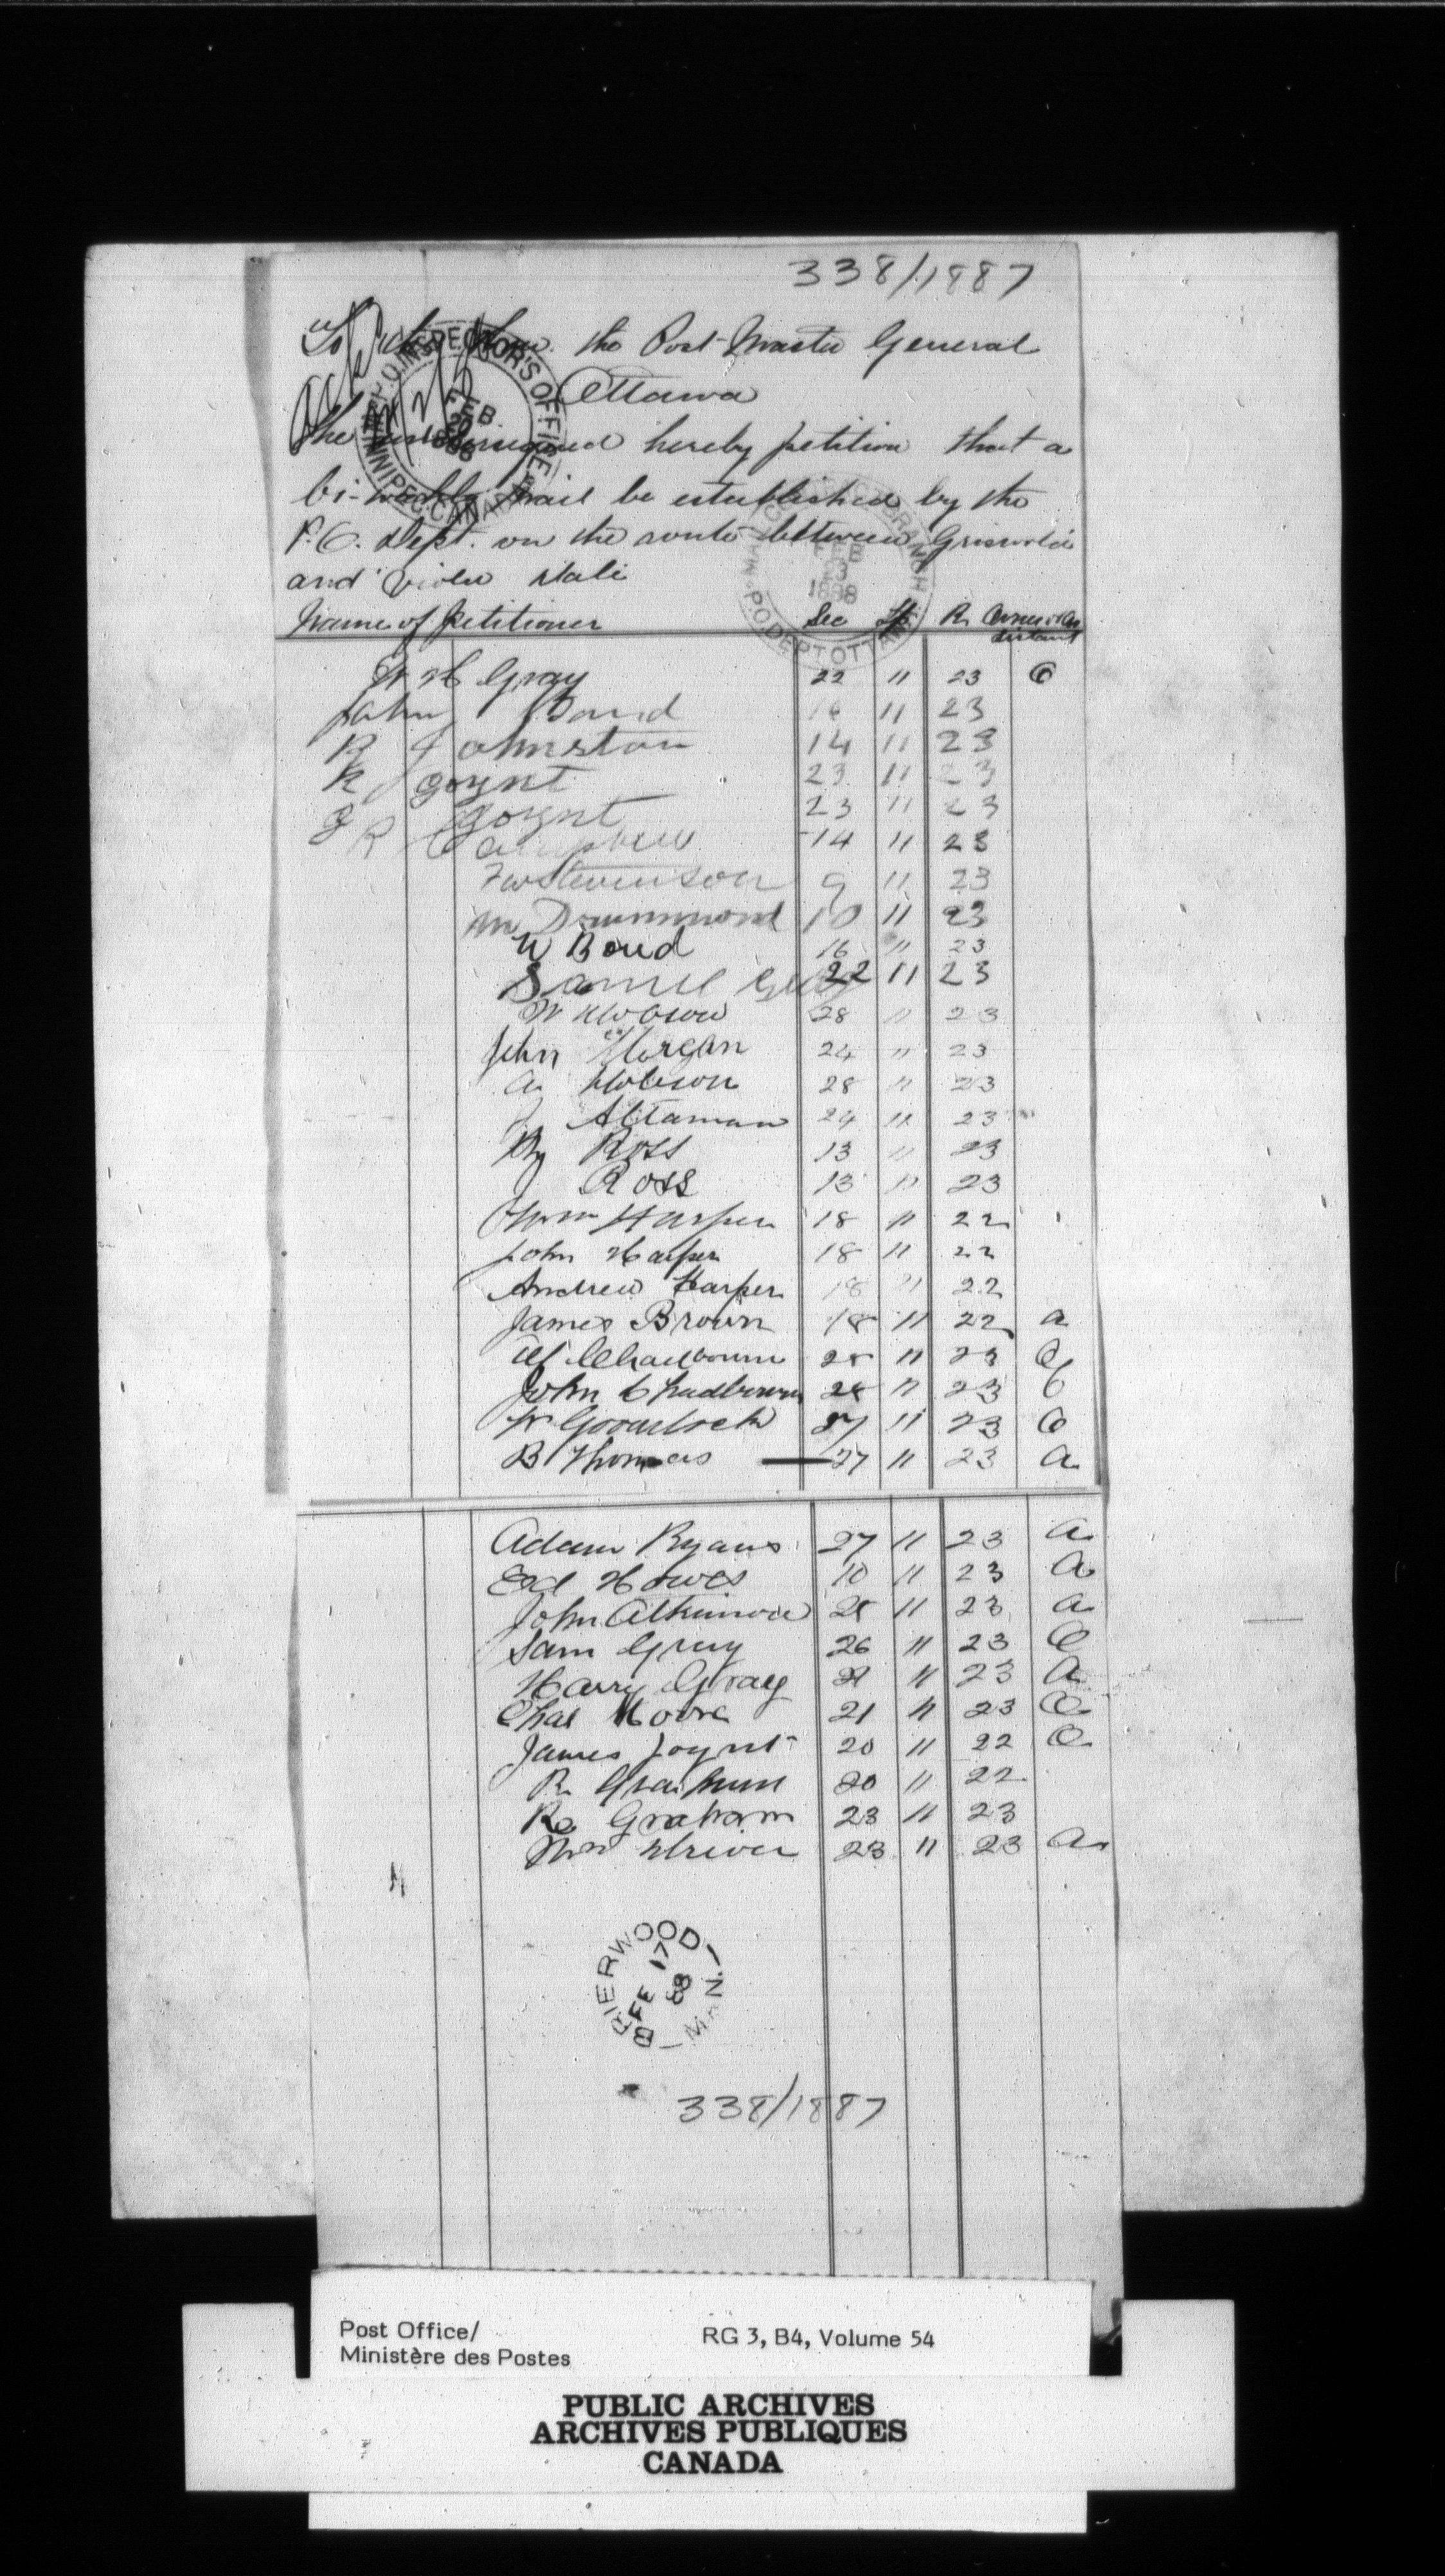 338/1887
To the Hon. the Post Master General
Ottawa
The undersigned hereby petition that a
bi-weekly mail be established by the
P.O. Dept. on the route between Griswold
and Viola Dale
P.O. INSPECTOR'S OFFICE
FEB
20
1888
WINNIPEG. CANADA
BRANCH
FEB
1888
P.O. DEPT OTTAWA
Name of Petitioner Sec Tp R
W H Gray 22 11 23 O
John Bond 16 11 23
R Johnston 14 11 23
R Joynt 23 11 23
J Joynt 23 11 23
R Campbell 14 11 23
Stevenson 9 11 23
M Drummond 10 11 23
W Bond 16 11 23
Samuel 22 11 23
W Hobson 28 11 23
John Morgan 24 11 23
A Hobson 28 11 23
J Altaman 24 11 23
Ross 13 11 23
Ross 13 11 23
Harper 18 11 22
John Harper 18 11 22
Andrew Harper 18 11 22
James Brown 18 11 22 a
Chadbourn 28 11 23 O
John Chadbourn 28 11 23 O
W 27 11 23 O
B Thomas 27 11 23 a
Adam Ryans 27 11 23 a
Ed Howes 10 11 23 a
John Atkinson 28 11 23 a
Sam Gray 26 11 23 O
Harry Gray 21 11 23 a
Chas Moore 21 11 23 O
James Joynt 20 11 22 O
R Graham 20 11 22
R Graham 23 11 23
23 11 23 a
BRIERWOOD
FE 17
88
MAN.
338/1887
Post Office/ RG 3, B4, Volume 54
Ministère des Postes
PUBLIC ARCHIVES
ARCHIVES PUBLIQUES
CANADA